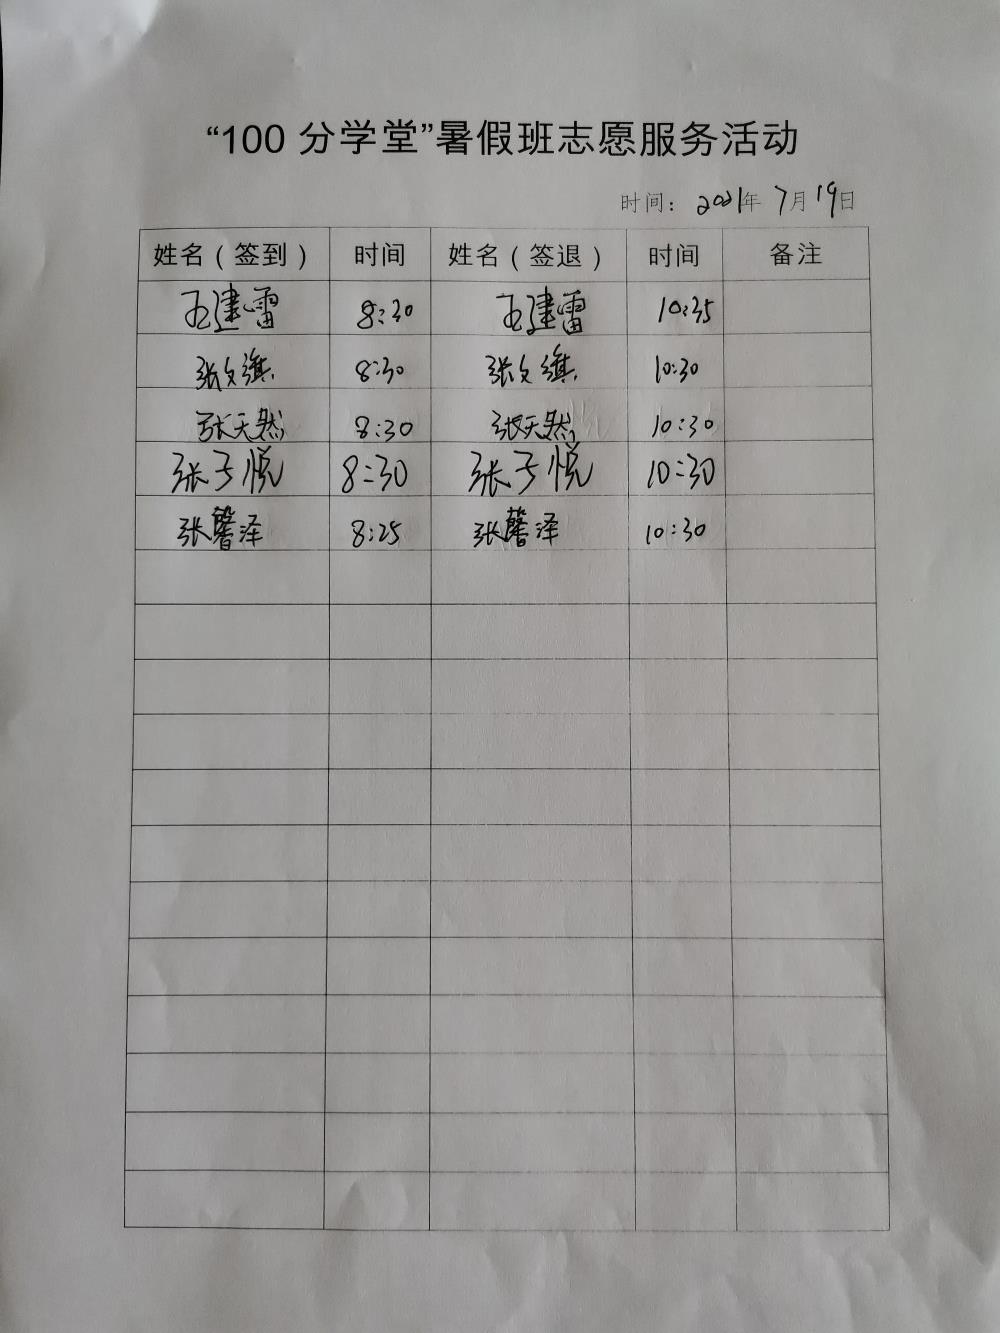 “100 分学堂”暑假班志愿服务活动
时间： 2021年 7月19日
姓名（签到） 时间 姓名（签退） 时间 备注
王建雷 8:30 王建雷 10:35
张文旗 8:30 张文旗 10:30
张天然 8:30 张天然 10:30
张子悦 8:30 张子悦 10:30
张馨泽 8:25 张馨泽 10:30